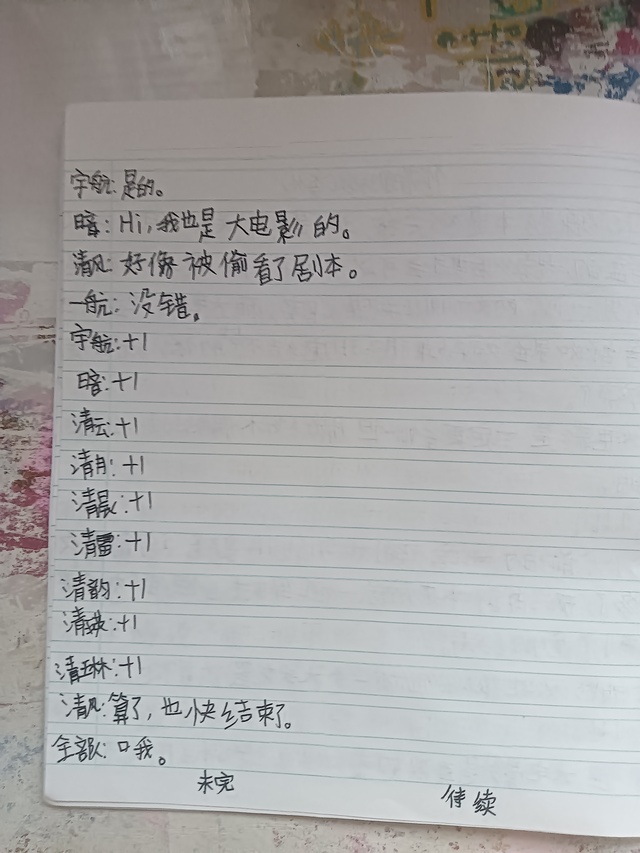 宇航:是的。
暗:Hi,我也是大电影的。
清风:好像被偷看了剧本。
一航:没错。
宇航:+1
暗:+1
清云:+1
清月:+1
清晨:+1
清雷:+1
清韵:+1
清瑛:+1
清琳:+1
清风:算了,也快结束了。
全部:口我。
未完
待续